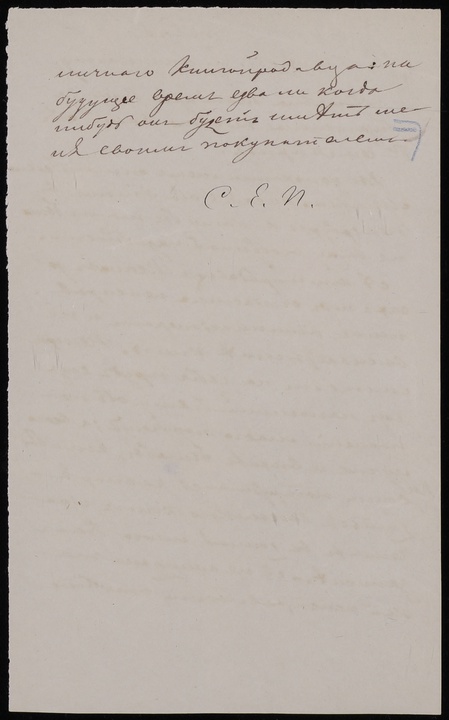 личнаго Книгопродавца: на
будущее время едва ли когда
нибудь онъ будетъ имѣть ме-
ня своимъ покупателемъ.
С. Е. П.